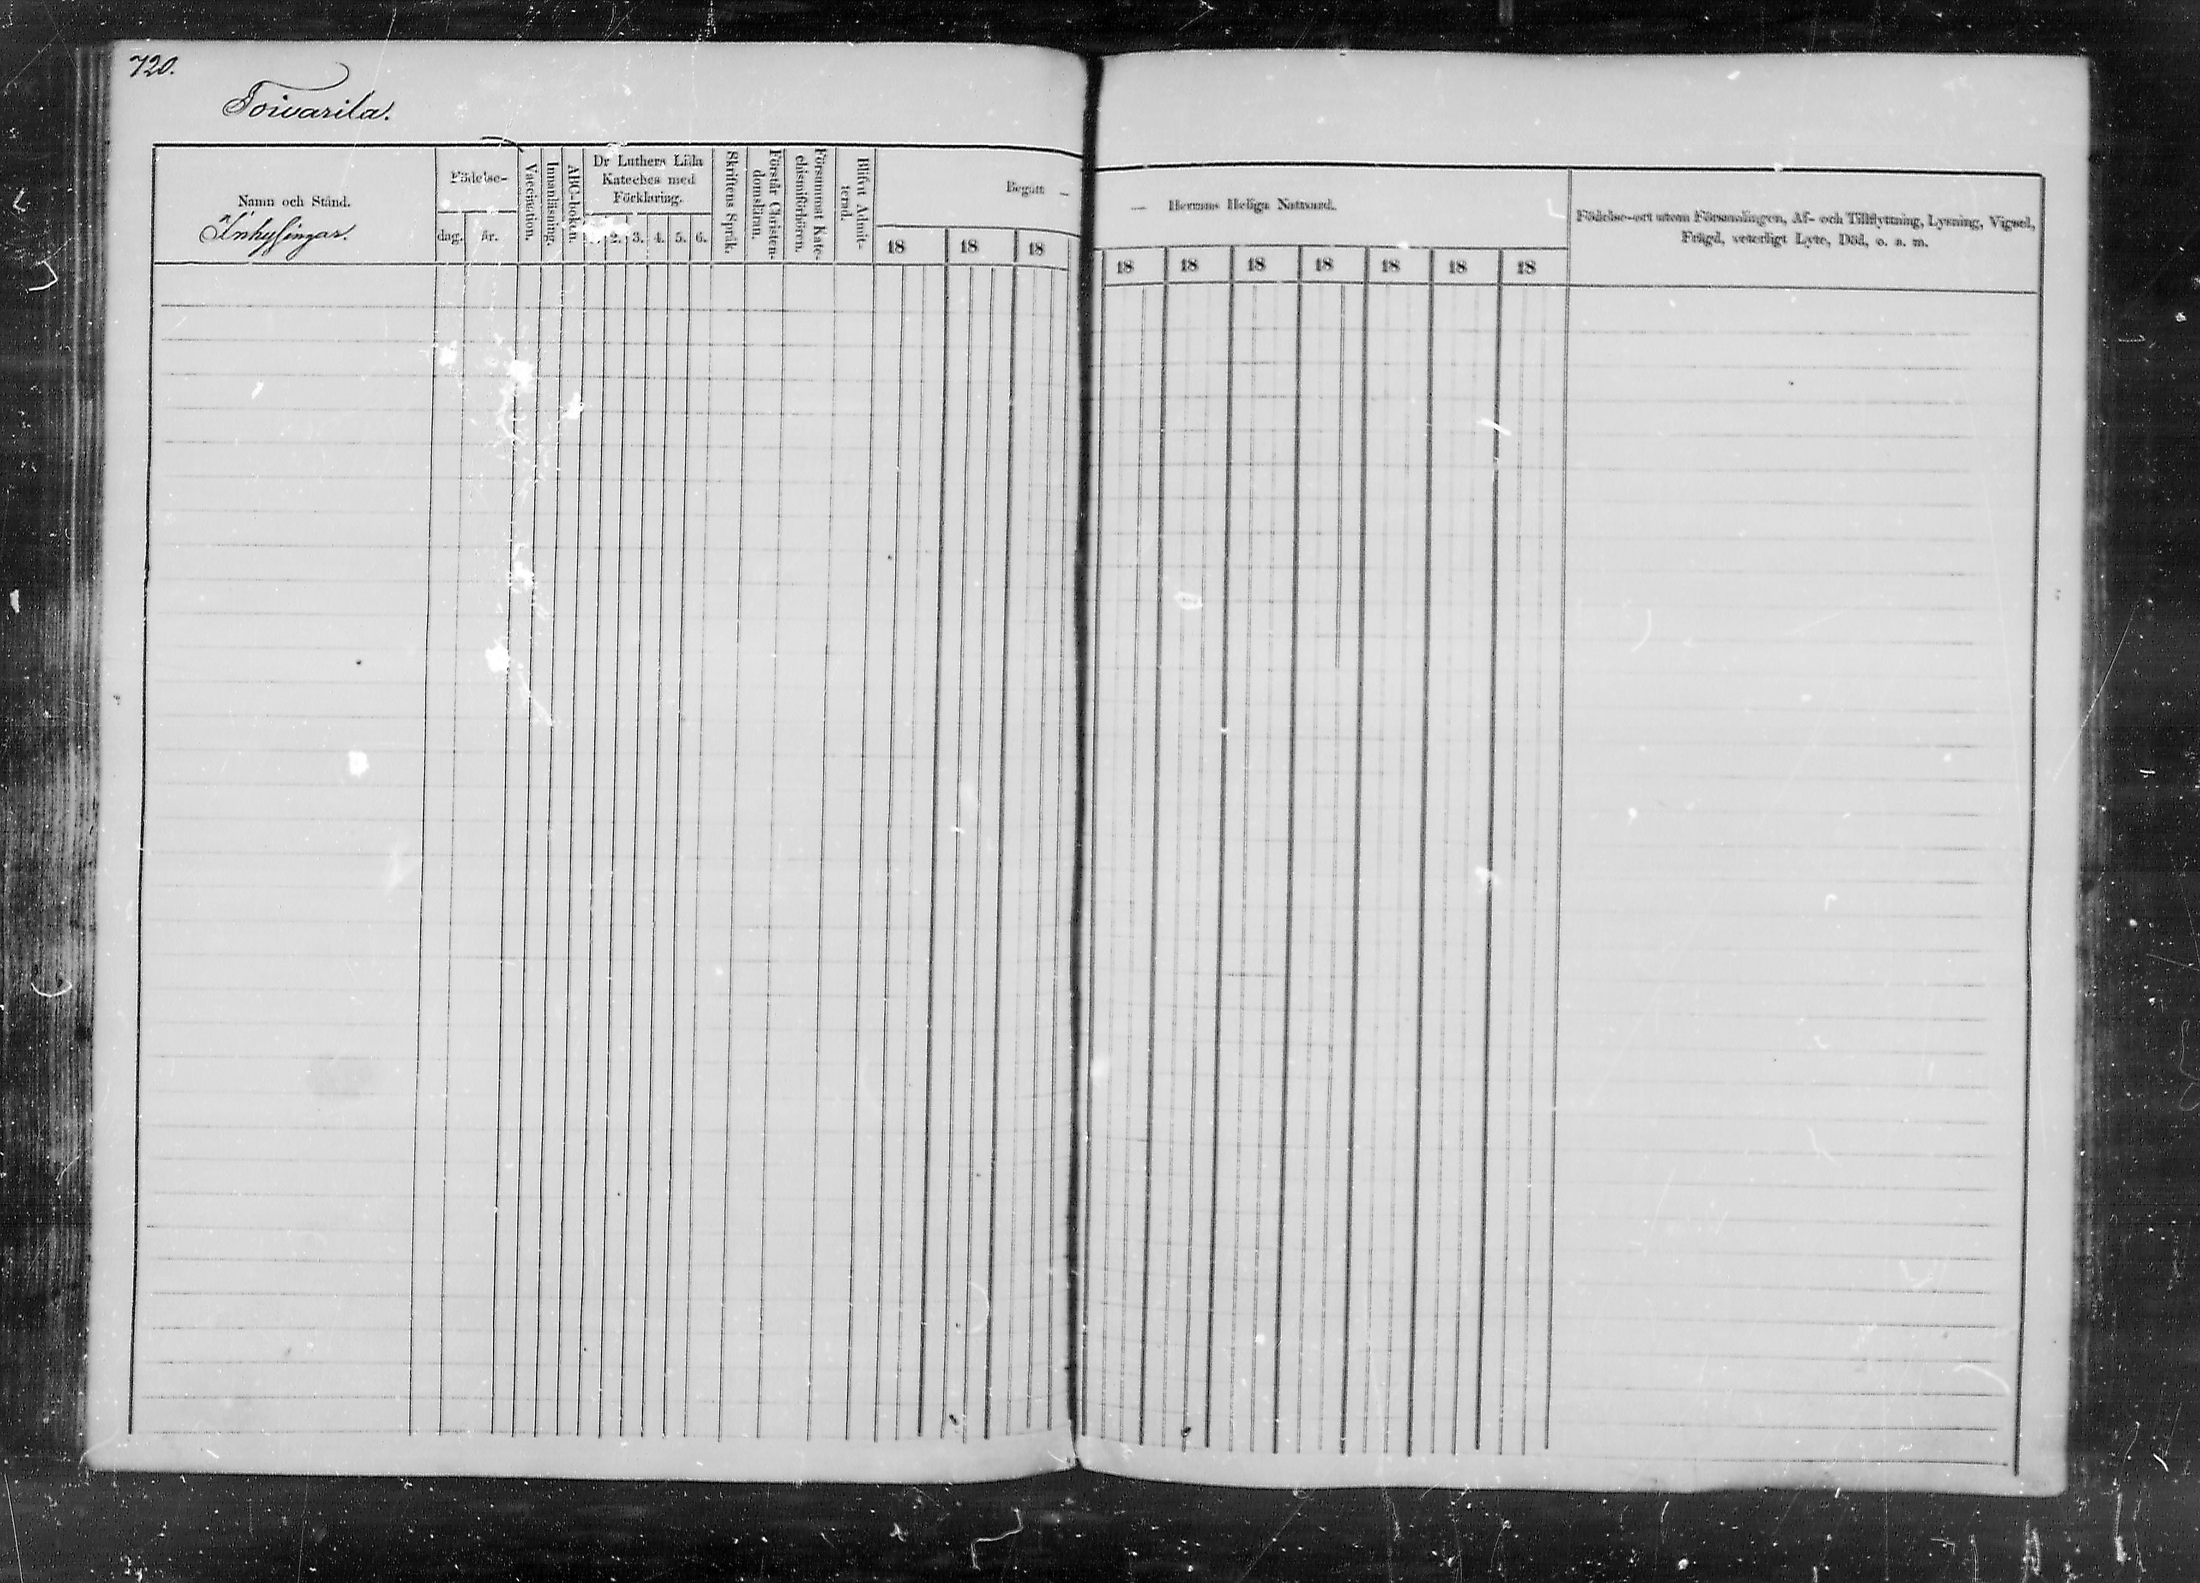 720.
Toivarila.
Namn och Stånd.
Inhysingar.
Födelse-
dag.
år.
Vaccination.
Innanläsning.
ABC-boken.
Dr Luthers Lilla
Kateches med
Förklaring.
1. 2. 3. 4. 5. 6.
Skriftens Språk.
Förstår Christen-
domsläran.
Försummat Kate-
chismiförhören.
Blifvit Admit-
terad.
Begått —
18 18 18
— Herrans Heliga Nattvard.
18 18 18 18 18 18 18
Födelse-ort utom Församlingen, Af- och Tillflyttning, Lysning, Vigsel,
Frägd, veterligt Lyte, Död, o. s. m.